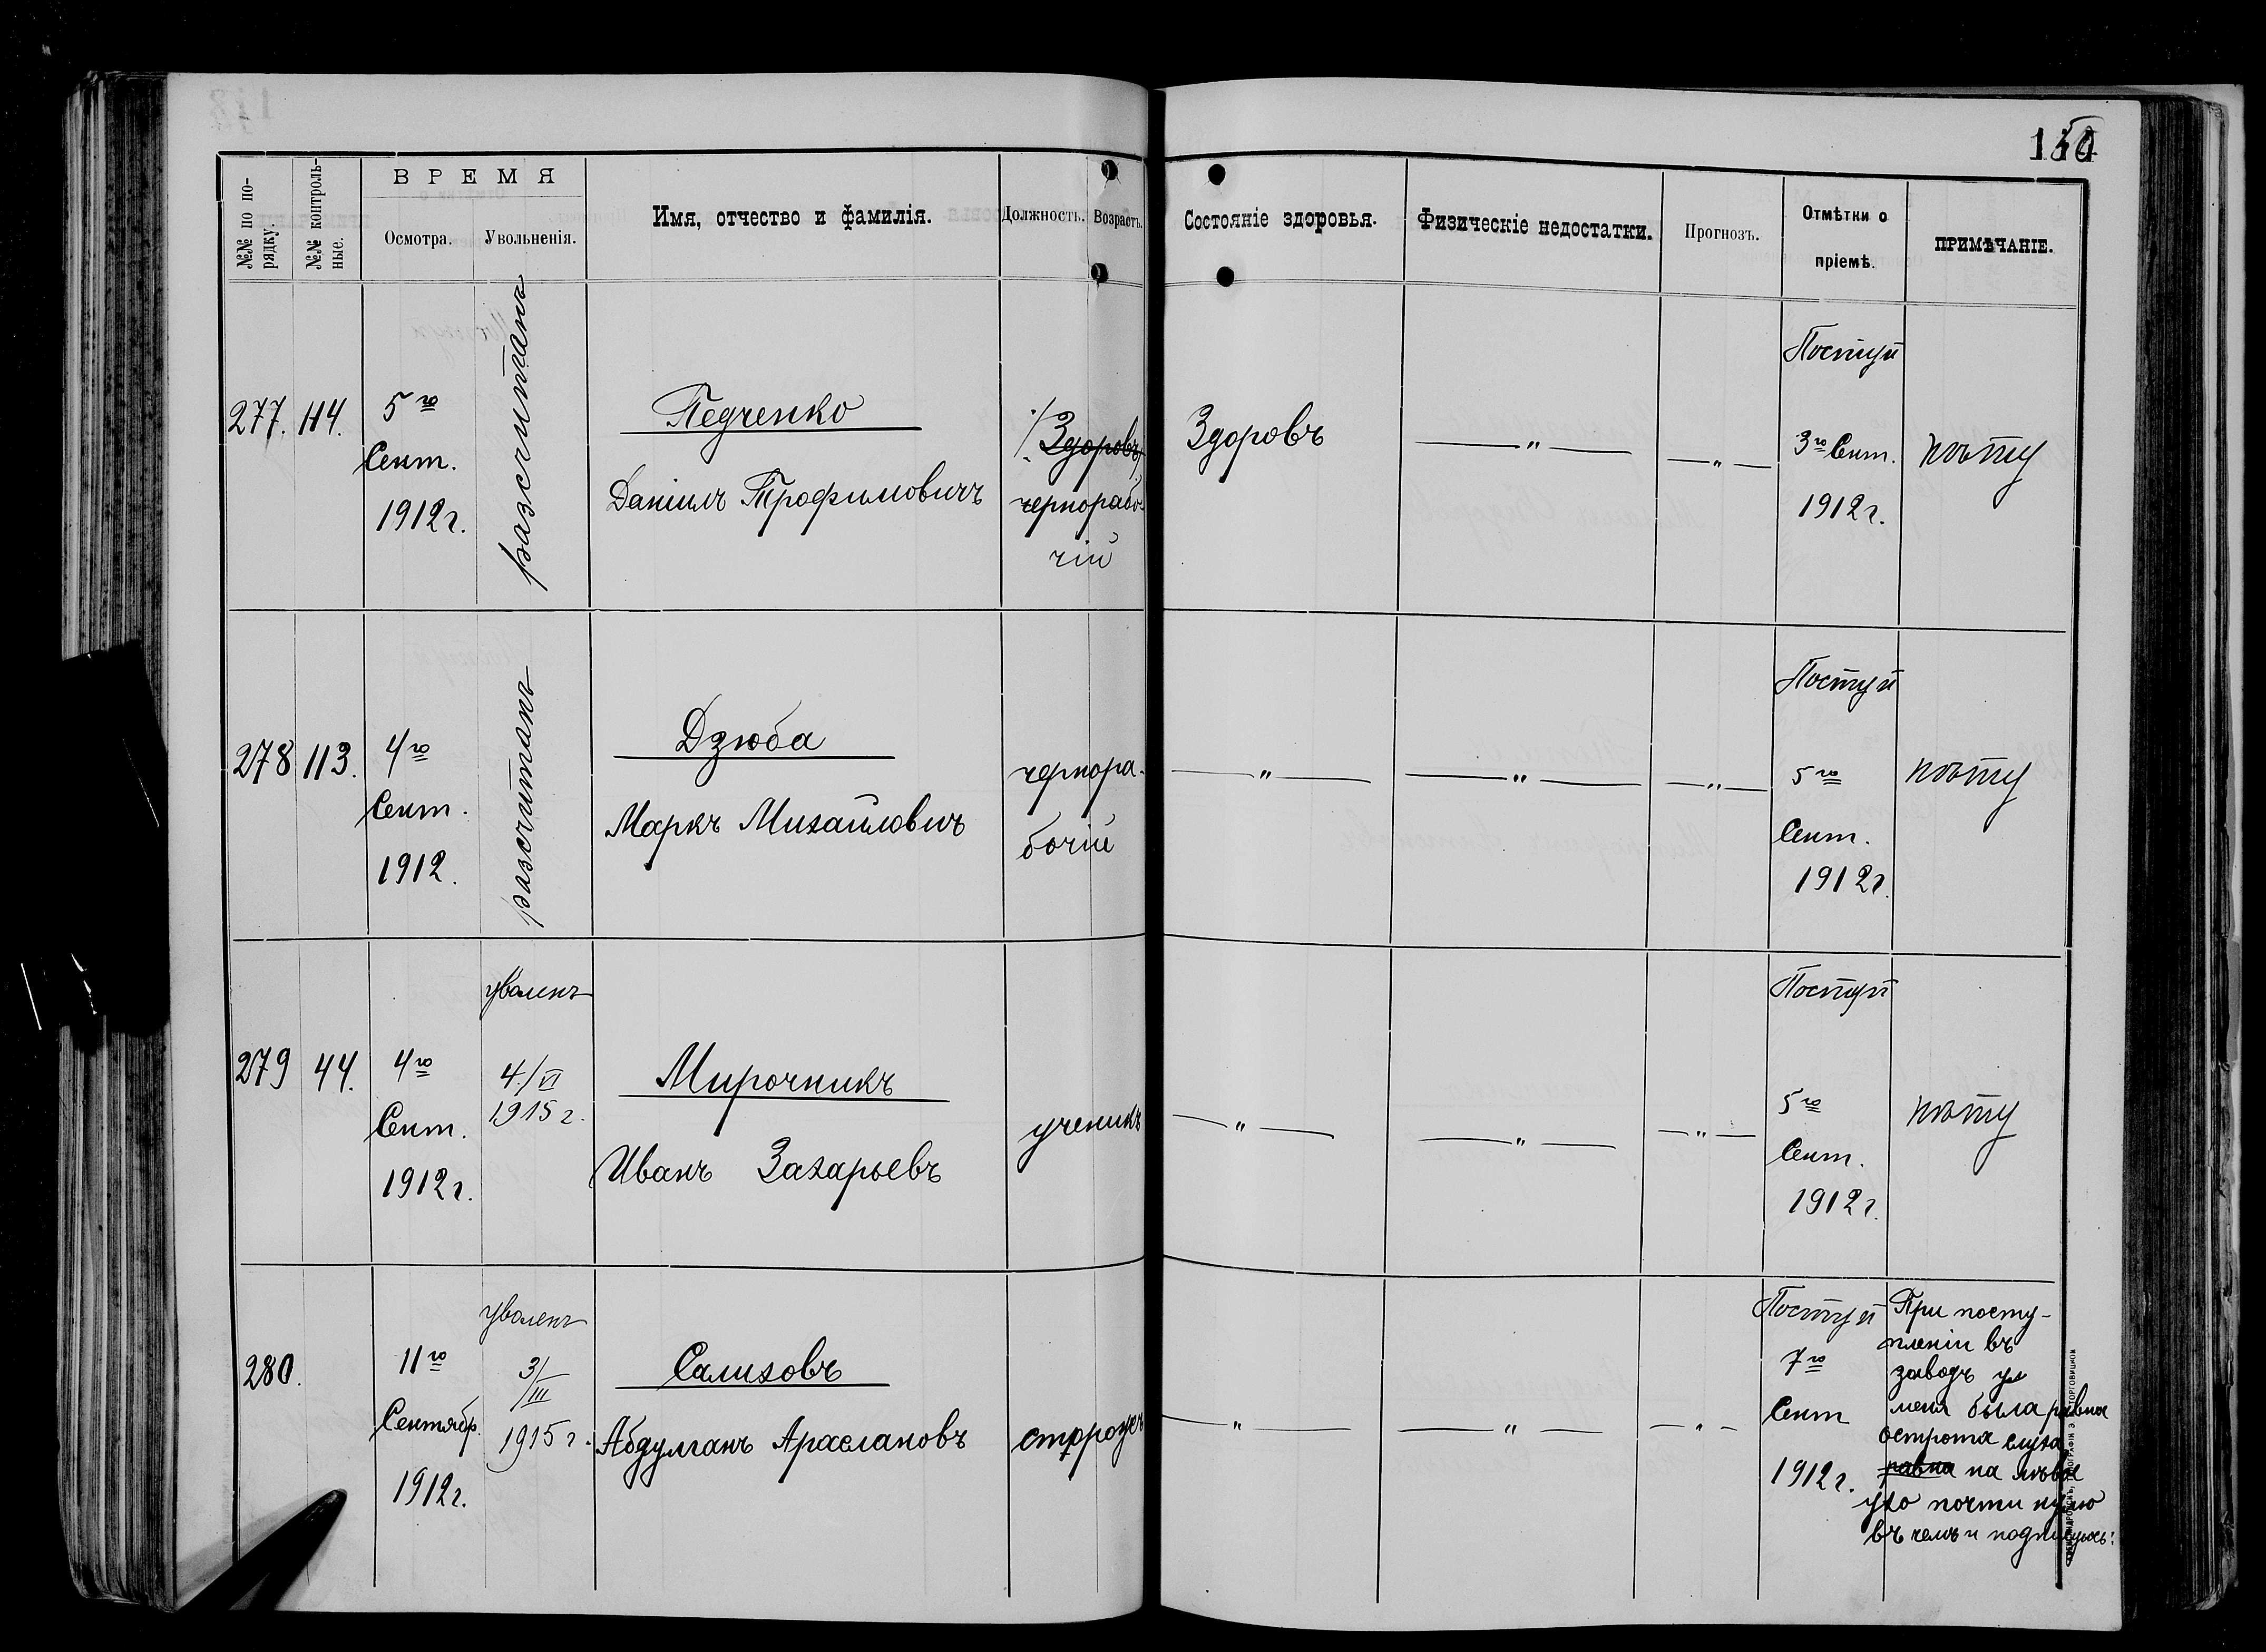 150
№№ по по-
рядку.
№№ контроль-
ные.
ВРЕМЯ
Осмотра.
Увольненія.
Имя, отчество и фамилія.
Должность.
Возрастъ.
Состояніе здоровья.
Физическіе недостатки.
Прогнозъ.
Отмѣтки о
пріемѣ.
ПРИМѢЧАНІЕ.
277.
114.
5го
Сент.
1912 г.
разсчитанъ
Педченко
Даніилъ Трофимовичъ
Здоровъ
чернорабо-
чій
Здоровъ
— " —
— " —
Поступ
3го Сент.
1912 г.
нѣту
278
113.
4го
Сент.
1912.
разсчитанъ
Дзюба
Маркъ Михайловичъ
чернора-
бочій
— " —
— " —
— " —
Поступ
5го
Сент.
1912 г.
нѣту
279
44.
4го
Сент.
1912 г.
уволенъ
4/VI
1915 г.
Мирочникъ
Иванъ Захарьевъ
ученикъ
— " —
— " —
— " —
Поступ
5го
Сент.
1912 г.
нѣту
280.
11го
Сентябр.
1912 г.
уволенъ
3/III
1915 г.
Салиховъ
Абдулганъ Араслановъ
сторожъ
— " —
— " —
— " —
Поступ
7го
Сент
1912 г.
При посту-
пленіи въ
заводъ у
меня была равна
острота слуха
равна на лѣвое
ухо почти нулю
въ чемъ и подпишусь: